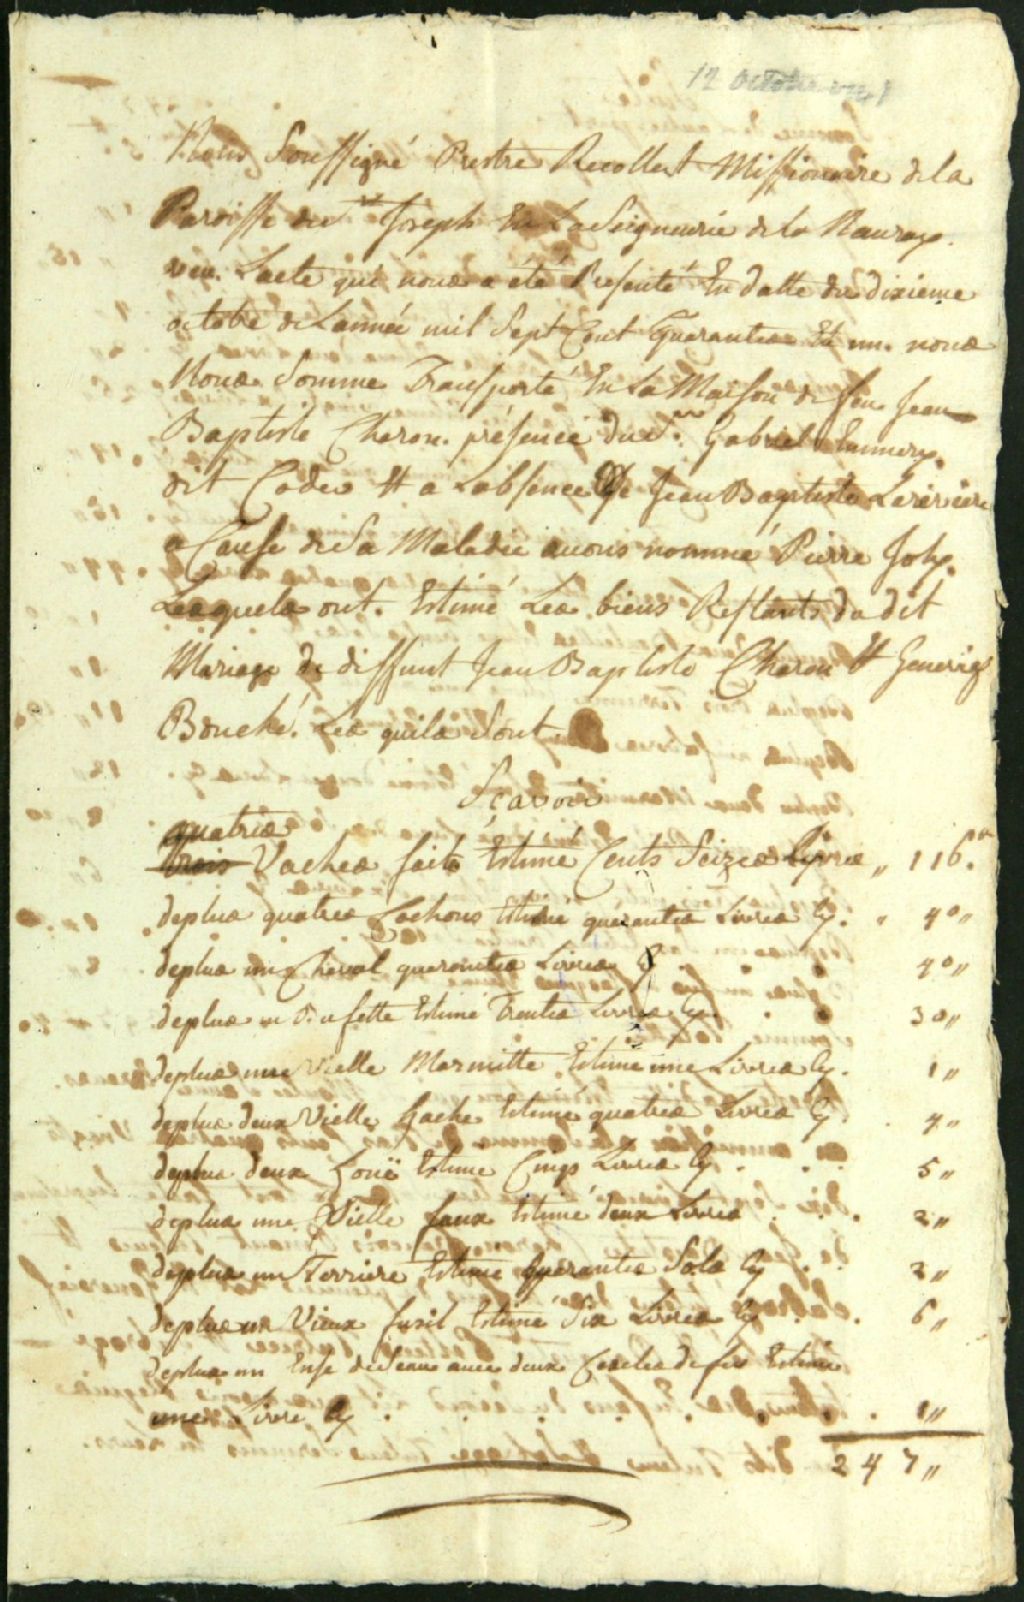 12 octobre 1741
Nous Soussigné Prestre Recollect Missionaire de la
Paroisse de St Joseph En La Seigneurie de la
veu. Lacte qui nous a été Presenté En datte du dixieme
octobre de Lannée mil Sept Cent Quarantes Et un. nous
Nous Somme Transporté En La Maison de feu Jean
Baptiste Charon. présence du Sr. Gabriel
dit Et a Labsence De Jean Baptiste
a Cause de Sa Maladie avons nommé Pierre Joly.
Lesquels ont. Estimé Les biens Restants du dit
Mariage de deffunt Jean Baptiste Charon Et
Bouché. Les quils Sont
Sçavoir
quatres
trois Vaches faits Estimé Cents Seizes Livres " 116."
deplus quatres Cochons Estimé quarantes Livres Cy. " 40"
deplus un Cheval quarantes Livres Cy 40"
deplus Estimé Trentes Livres Cy 30"
deplus une Vielle Marmitte Estimé une Livres Cy. 1"
deplus deux Vielle hache Estimé quatres Livres Cy 4"
deplus deux Estimé Cinqs Livres Cy 5"
deplus une Vielle faux Estimé deux Livres 2"
deplus un Terriere Estimé Quarantes Sols Cy 2"
deplus un Vieux fusil Estimé Six Livres Cy 6"
deplus un de Seau avec deux Cercles de fer Estimé
une Livre Cy 1"
247"